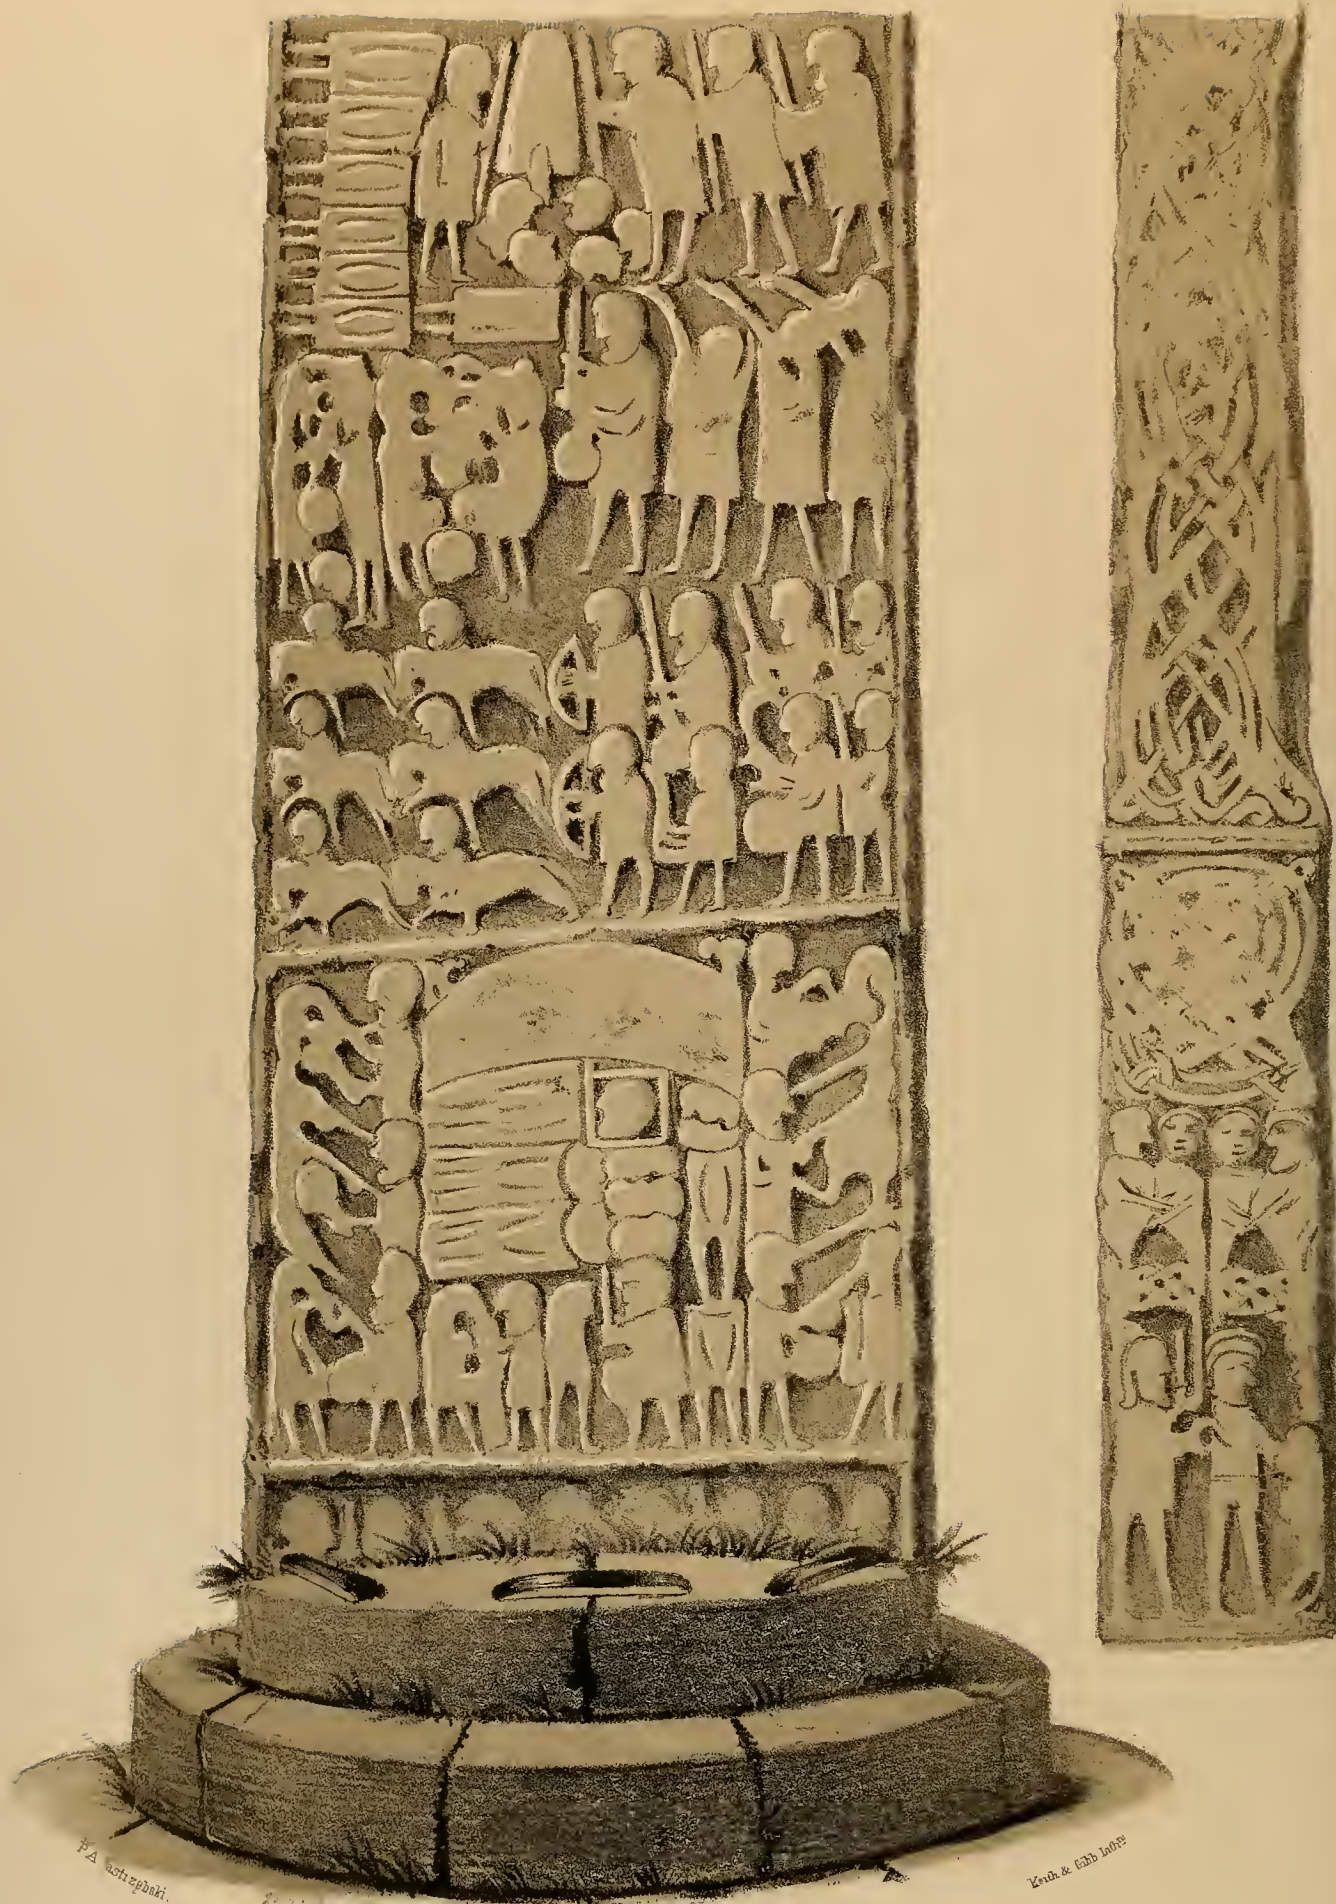 P A astrzębski.
Keith & Gibb Lithrs